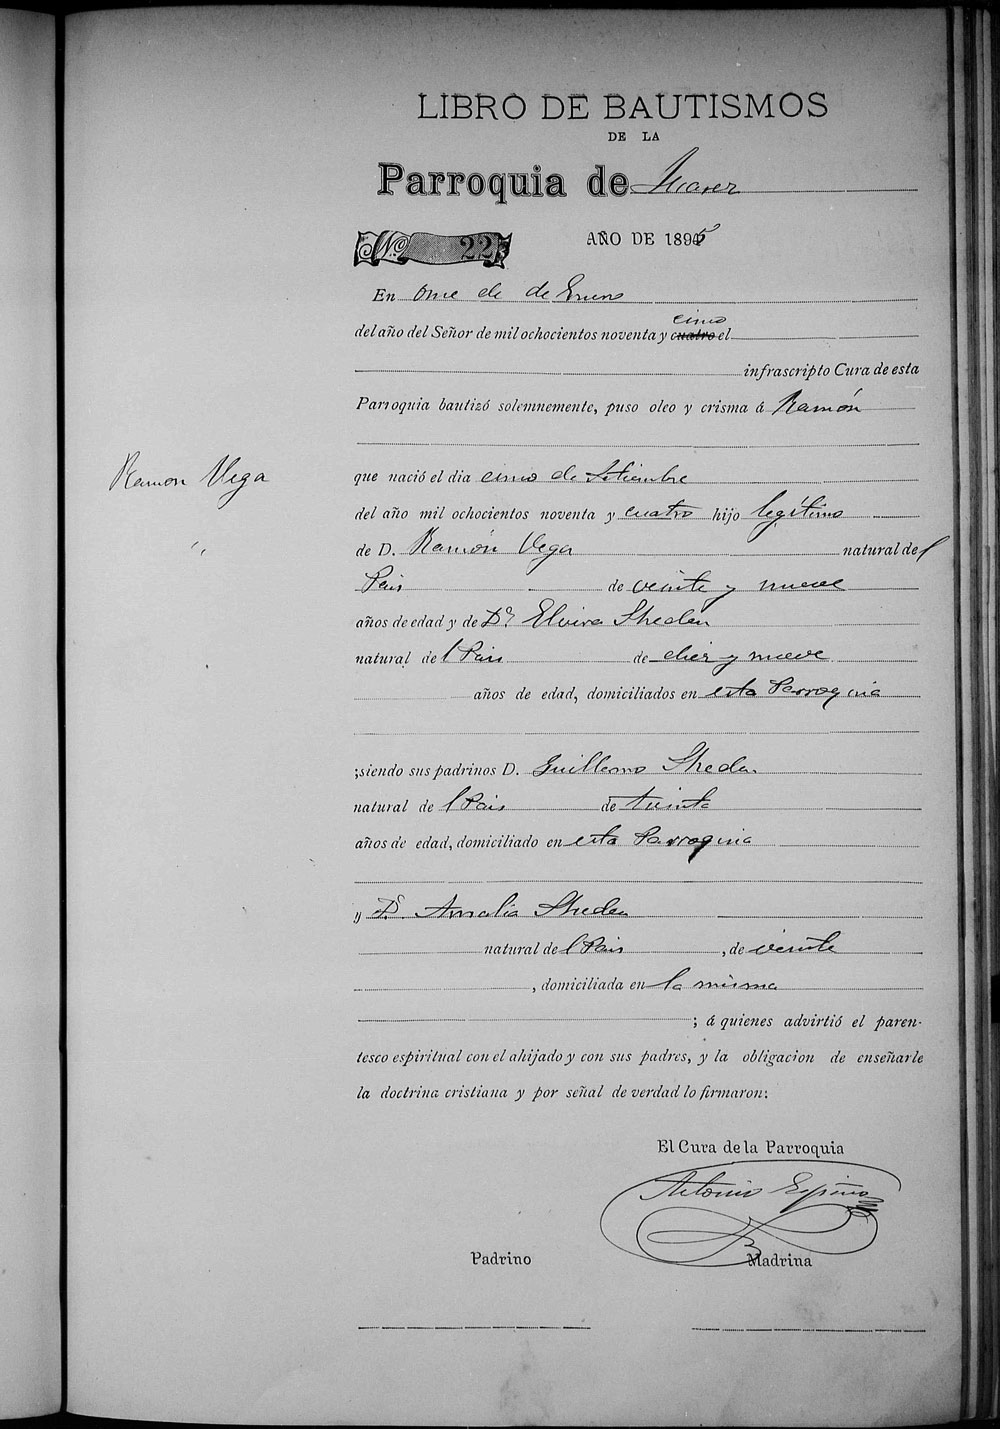 LIBRO DE BAUTISMOS
DE LA
Parroquia de Juarez
No. 22
AÑO DE 1895
En once de de Enero
cinco
del año del Señor de mil ochocientos noventa y cuatro el
infrascripto Cura de esta
Parroquia bautizó solemnemente, puso oleo y crisma á Ramón
Ramon Vega
que nació el dia cinco de Setiembre
del año mil ochocientos noventa y cuatro hijo legítimo
de D. Ramón Vega natural del
Pais de veinte y nueve
años de edad y de Dª Elvira Sheden
natural del Pais de diez y nueve
años de edad, domiciliados en esta Parroquia
;siendo sus padrinos D. Guillermo Sheden
natural del Pais de treinta
años de edad, domiciliado en esta Parroquia
y Dª Amalia Sheden
natural del Pais , de veinte
, domiciliada en la misma
; á quienes advirtió el paren-
tesco espiritual con el ahijado y con sus padres, y la obligacion de enseñarle
la doctrina cristiana y por señal de verdad lo firmaron:
El Cura de la Parroquia
Antonio Espiño
Padrino Madrina